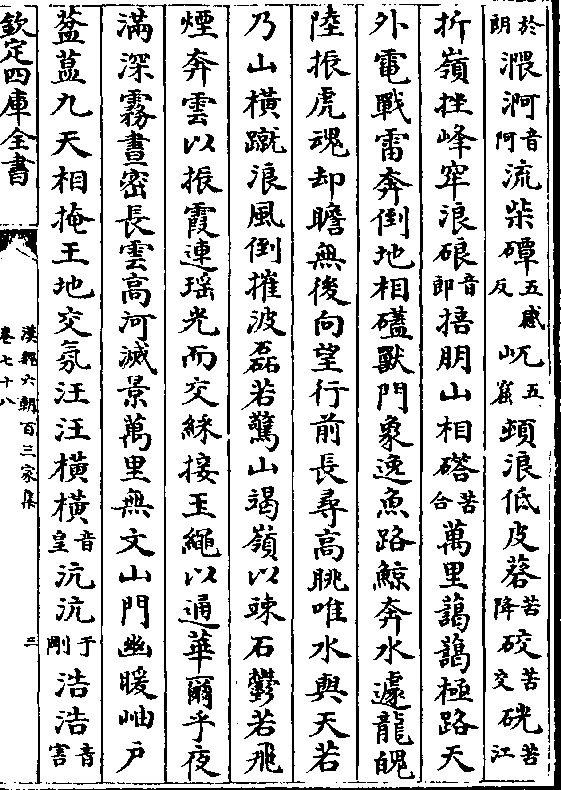 於朗渨河音阿流柴磹五感反屼五窟頓浪低皮䃔苦降䂭苦交硄苦江
折嶺挫峰窂浪硠音郎捂朋山相嗒苦合萬里藹藹極路天
外電戰雷奔倒地相磕獸門象逸魚路鯨奔水遽龍魄
陸振虎魂却瞻無後向望行前長尋高眺唯水與天若
乃山橫蹴浪風倒摧波磊若驚山竭嶺以竦石鬱若飛
煙奔雲以振霞連瑤光而交綵接玉繩以通華爾乎夜
滿深霧晝密長雲高河滅景萬里無文山門幽曖岫戶
葐蒀九天相掩玉地交氛汪汪橫橫音皇沆沆于剛浩浩音害
欽定四庫全書
漢魏六朝百三家集
卷七十八
三